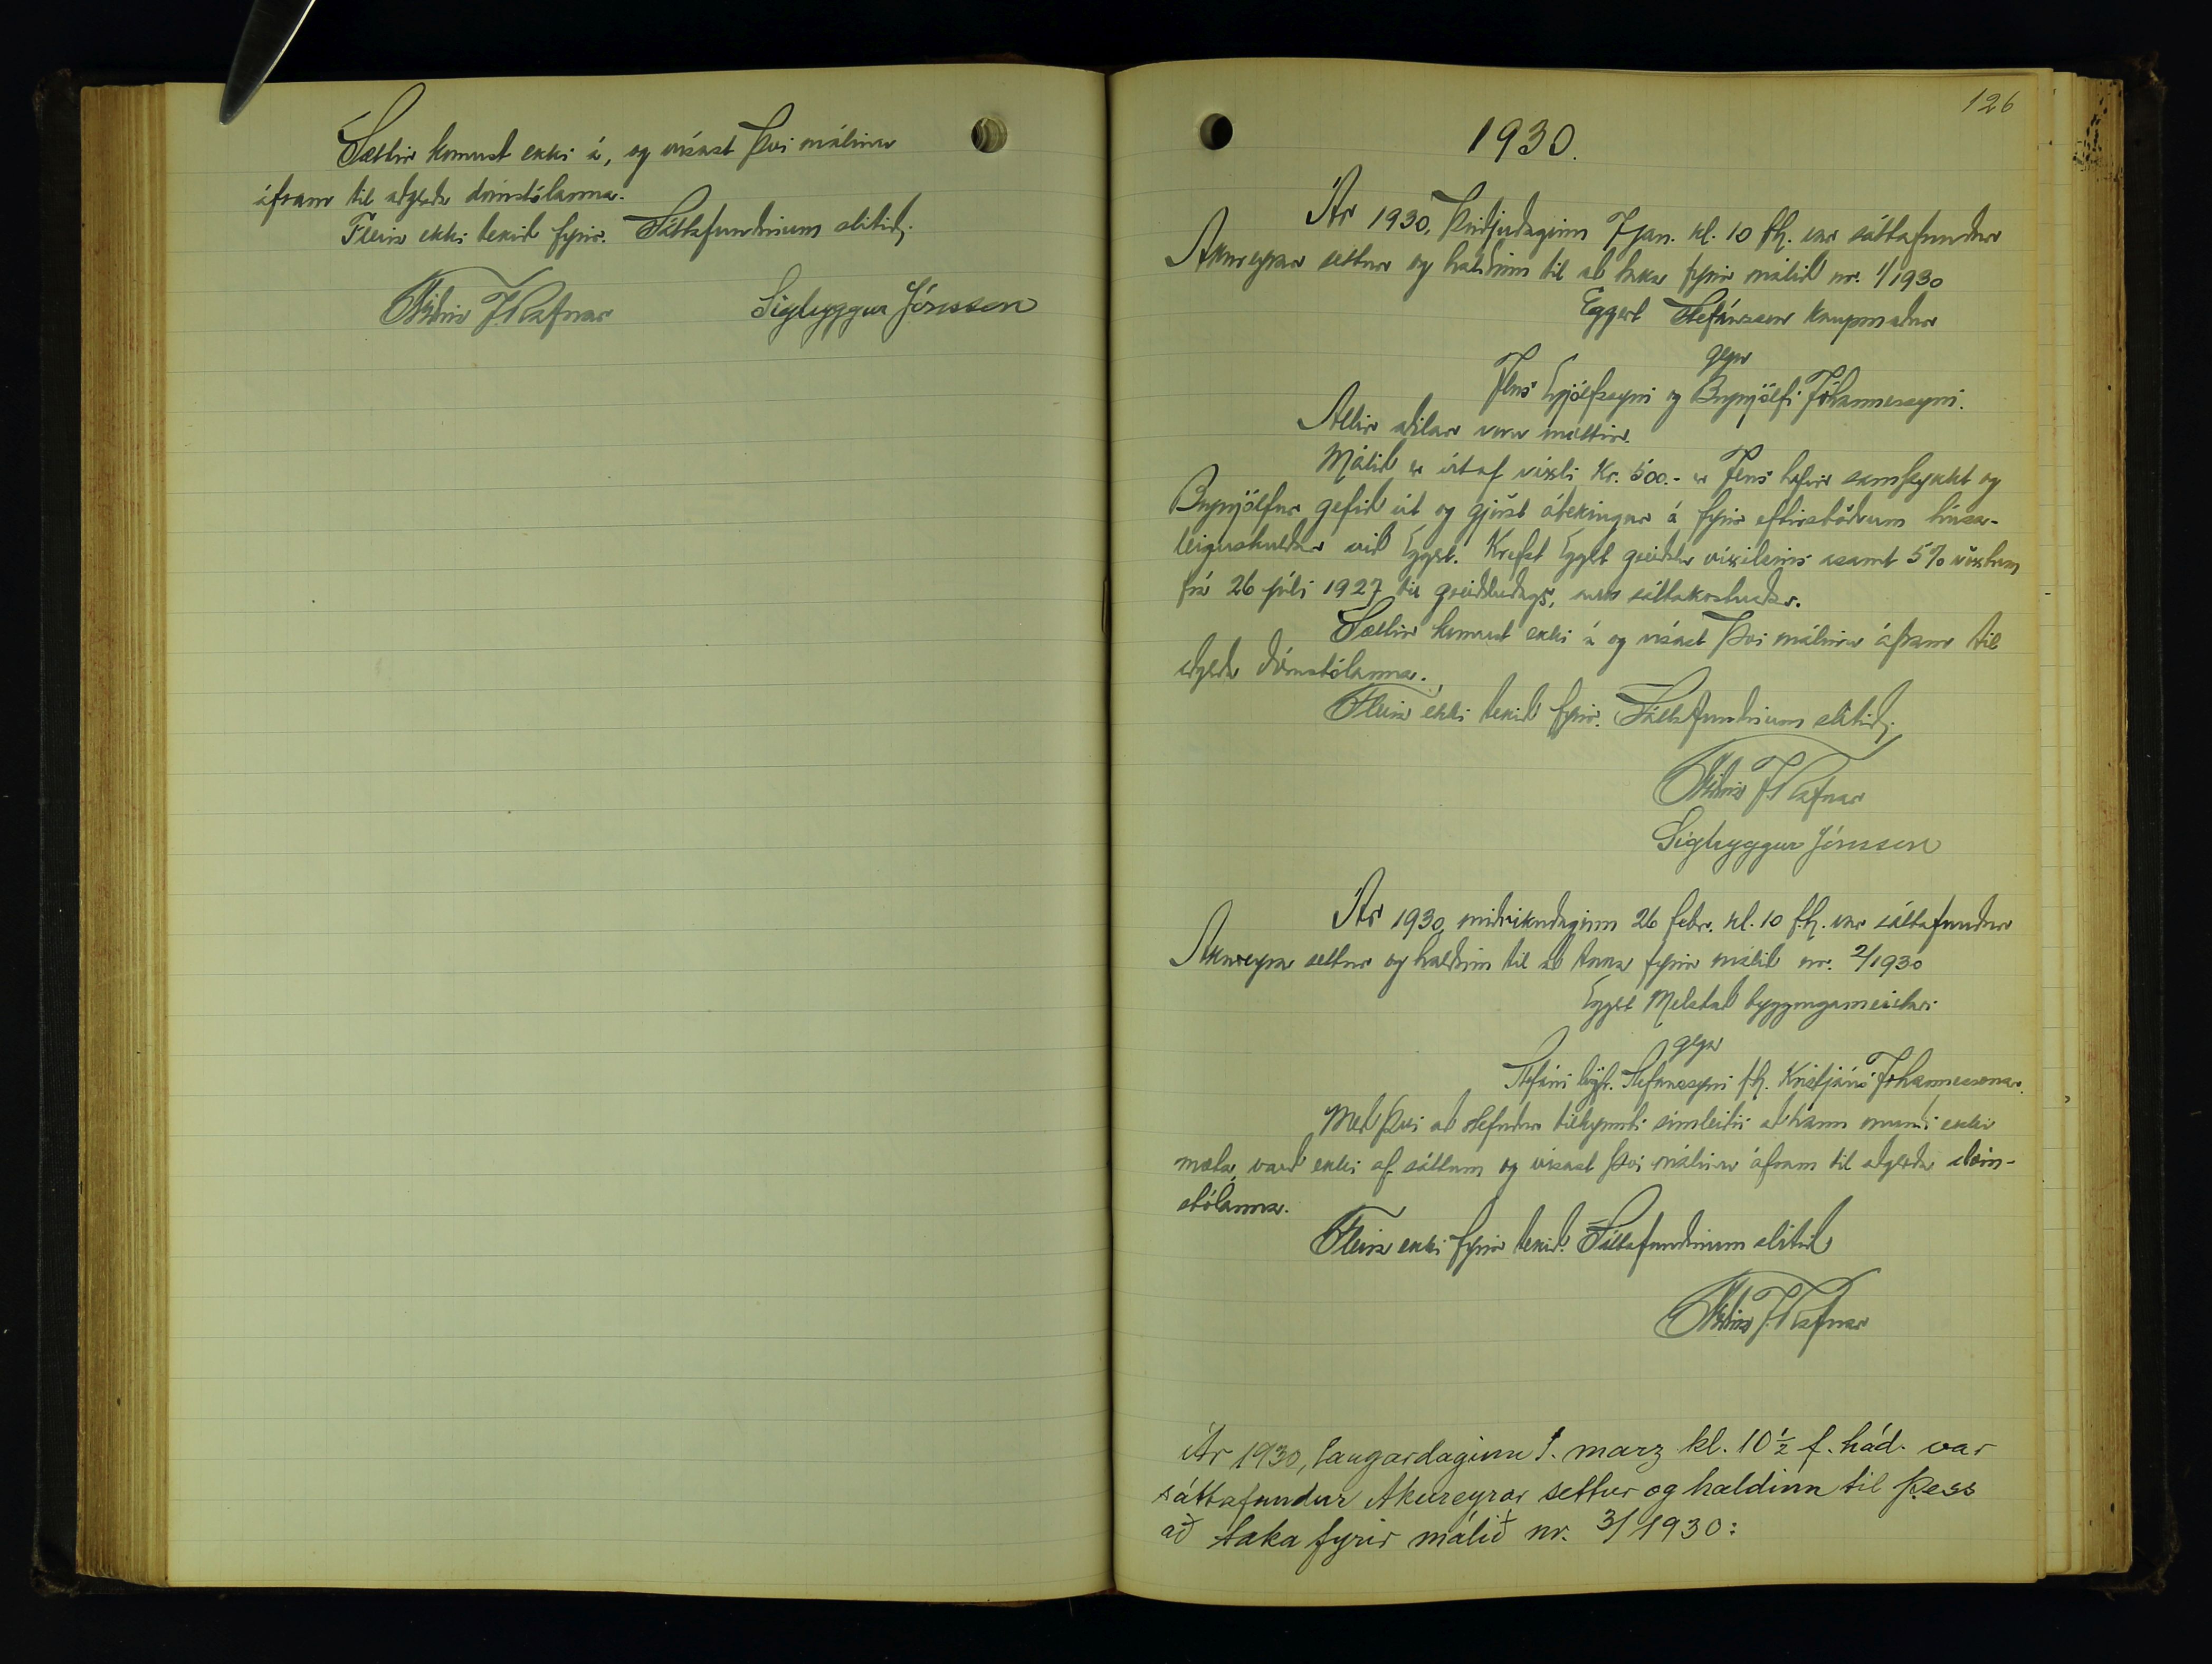 Sættir komust ekki á, og vísast því málinu
áfram til aðgerða dómstólanna.
Fleira ekki tekið fyrir. Sáttafundinum slitið.
Friðrik J. Rafnar Sigtryggur Jónsson
126
1930.
Ár 1930, þriðjudaginn 7 jan. kl. 10 fh. var sáttafundur
Akureyrar settur og haldinn til að taka fyrir málið nr. 1/1930
Eggert Stefánsson kaupmaður
gegn
Jens Eyjólfssyni og Brynjólfi Jóhannessyni.
Allir aðilar voru mættir.
Málið er út af víxli Kr. 500.- er Jens hefir samþykkt og
Brynjólfur gefið út og gjörst ábekingur á fyrir eftirstöðvum húsa-
leiguskuldar við Eggert. Krefst Eggert greiðslu víxilsins ásamt 5% vöxtum
frá 26 júlí 1927 til greiðsludags, auk sáttakostnaðar.
Sættir komust ekki á og vísast því málinu áfram til
aðgerða dómstólanna.
Fleira ekki tekið fyrir. Sáttafundinum slitið.
Friðrik J. Rafnar
Sigtryggur Jónsson
Ár 1930, miðvikudaginn 26 febr. kl. 10 f.h. var sáttafundur
Akureyrar settur og haldinn til að taka fyrir málið nr. 2/1930
Eggert Melstað byggingameistari
gegn
Stefáni lögfr. Stefánssyni fh. Kristjáns Jóhannessonar.
Með því að stefndur tilkynnti símleiðis að hann mundi ekki
mæta, varð ekki af sáttum og vísast því málinu áfram til aðgerða dóm-
stólanna.
Fleira ekki fyrir tekið. Sáttafundinum slitið
Friðrik J. Rafnar
Ár 1930, laugardaginn 1. marz kl. 10 1/2 f. hád. var
sáttafundur Akureyrar settur og haldinn til þess
að taka fyrir málið nr. 3/1930: